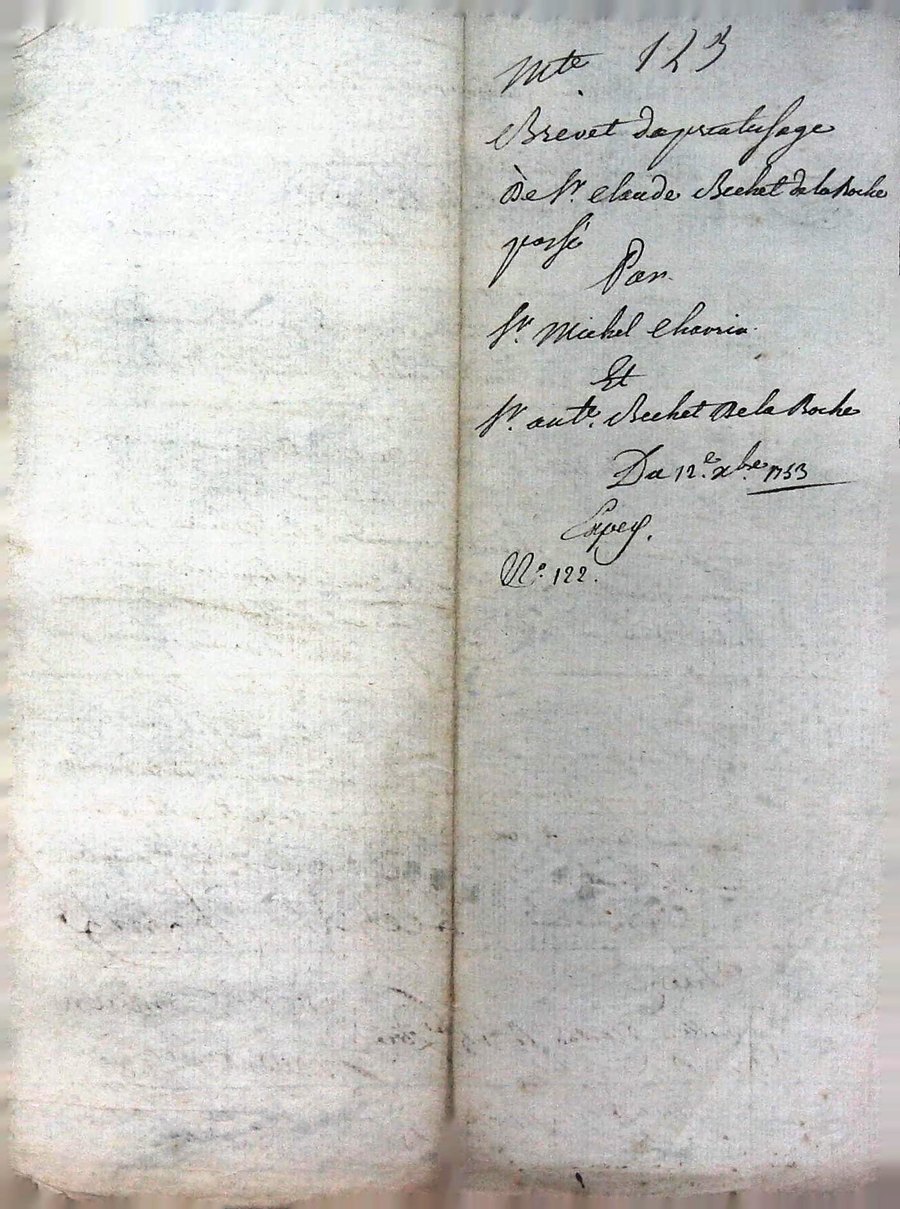 Mte 123
Brevet daprentissage
De Sr. Claude Bechet de la Roche
passé
Par
Sr. Michel Chavrin
Et
Sr. ante. Bechet De la Roche
Du 12.e xbre 1753
Expey.
No. 122.